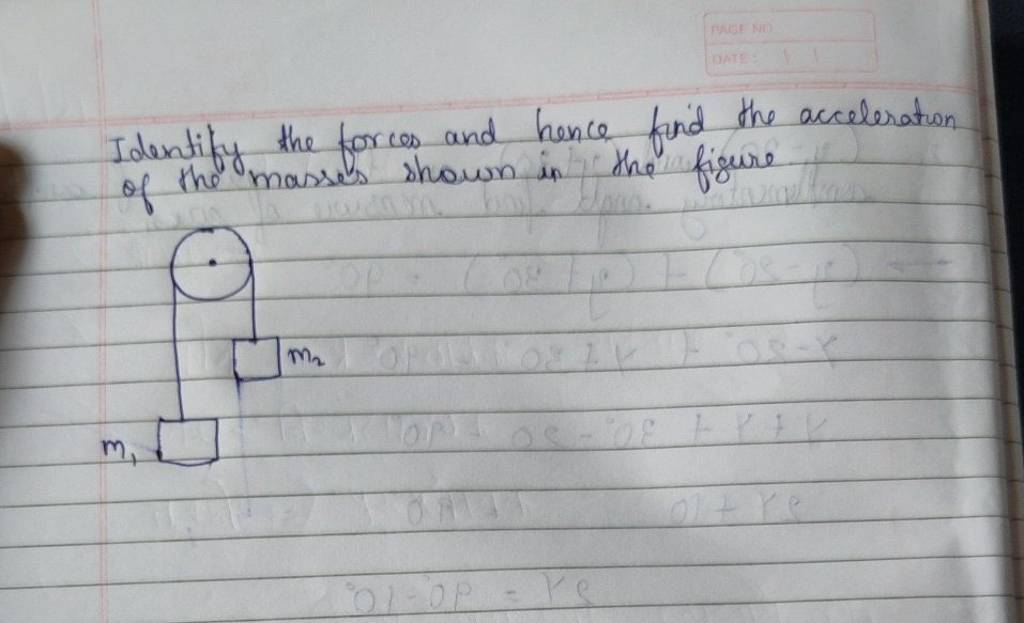 PAGE NO
DATE:
Identify the forces and hence find the acceleration
of the masses shown in the figure
m₂
m₁